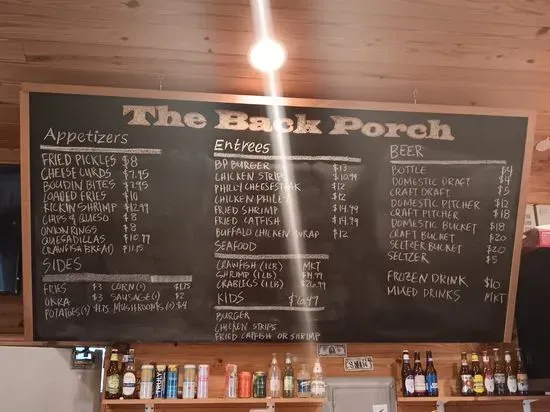 The Back Porch
Appetizers
FRIED PICKLES $8
CHEESE CURDS $7.95
BOUDIN BITES $7.95
LOADED FRIES $10
KICKIN SHRIMP $12.99
CHIPS & QUESO $8
ONION RINGS $8
QUESADILLAS $10.99
CRAWFISH BREAD $11.25
SIDES
FRIES $3 CORN (1) $1.75
OKRA $3 SAUSAGE (1) $2
POTATOES (1) $1.75 MUSHROOMS (3) $4
Entrees
BP BURGER $13
CHICKEN STRIPS $10.99
PHILLY CHEESESTEAK $12
CHICKEN PHILLY $12
FRIED SHRIMP $14.99
FRIED CATFISH $14.99
BUFFALO CHICKEN WRAP $12
SEAFOOD
CRAWFISH (1 LB) MKT
SHRIMP (1 LB) $14.99
CRABLEGS (1 LB) $26.99
KIDS $6.49
BURGER
CHICKEN STRIPS
FRIED CATFISH OR SHRIMP
BEER
BOTTLE $4
DOMESTIC DRAFT $4
CRAFT DRAFT $5
DOMESTIC PITCHER $12
CRAFT PITCHER $18
DOMESTIC BUCKET $18
CRAFT BUCKET $20
SELTZER BUCKET $20
SELTZER $5
FROZEN DRINK $10
MIXED DRINKS MKT
TRULY